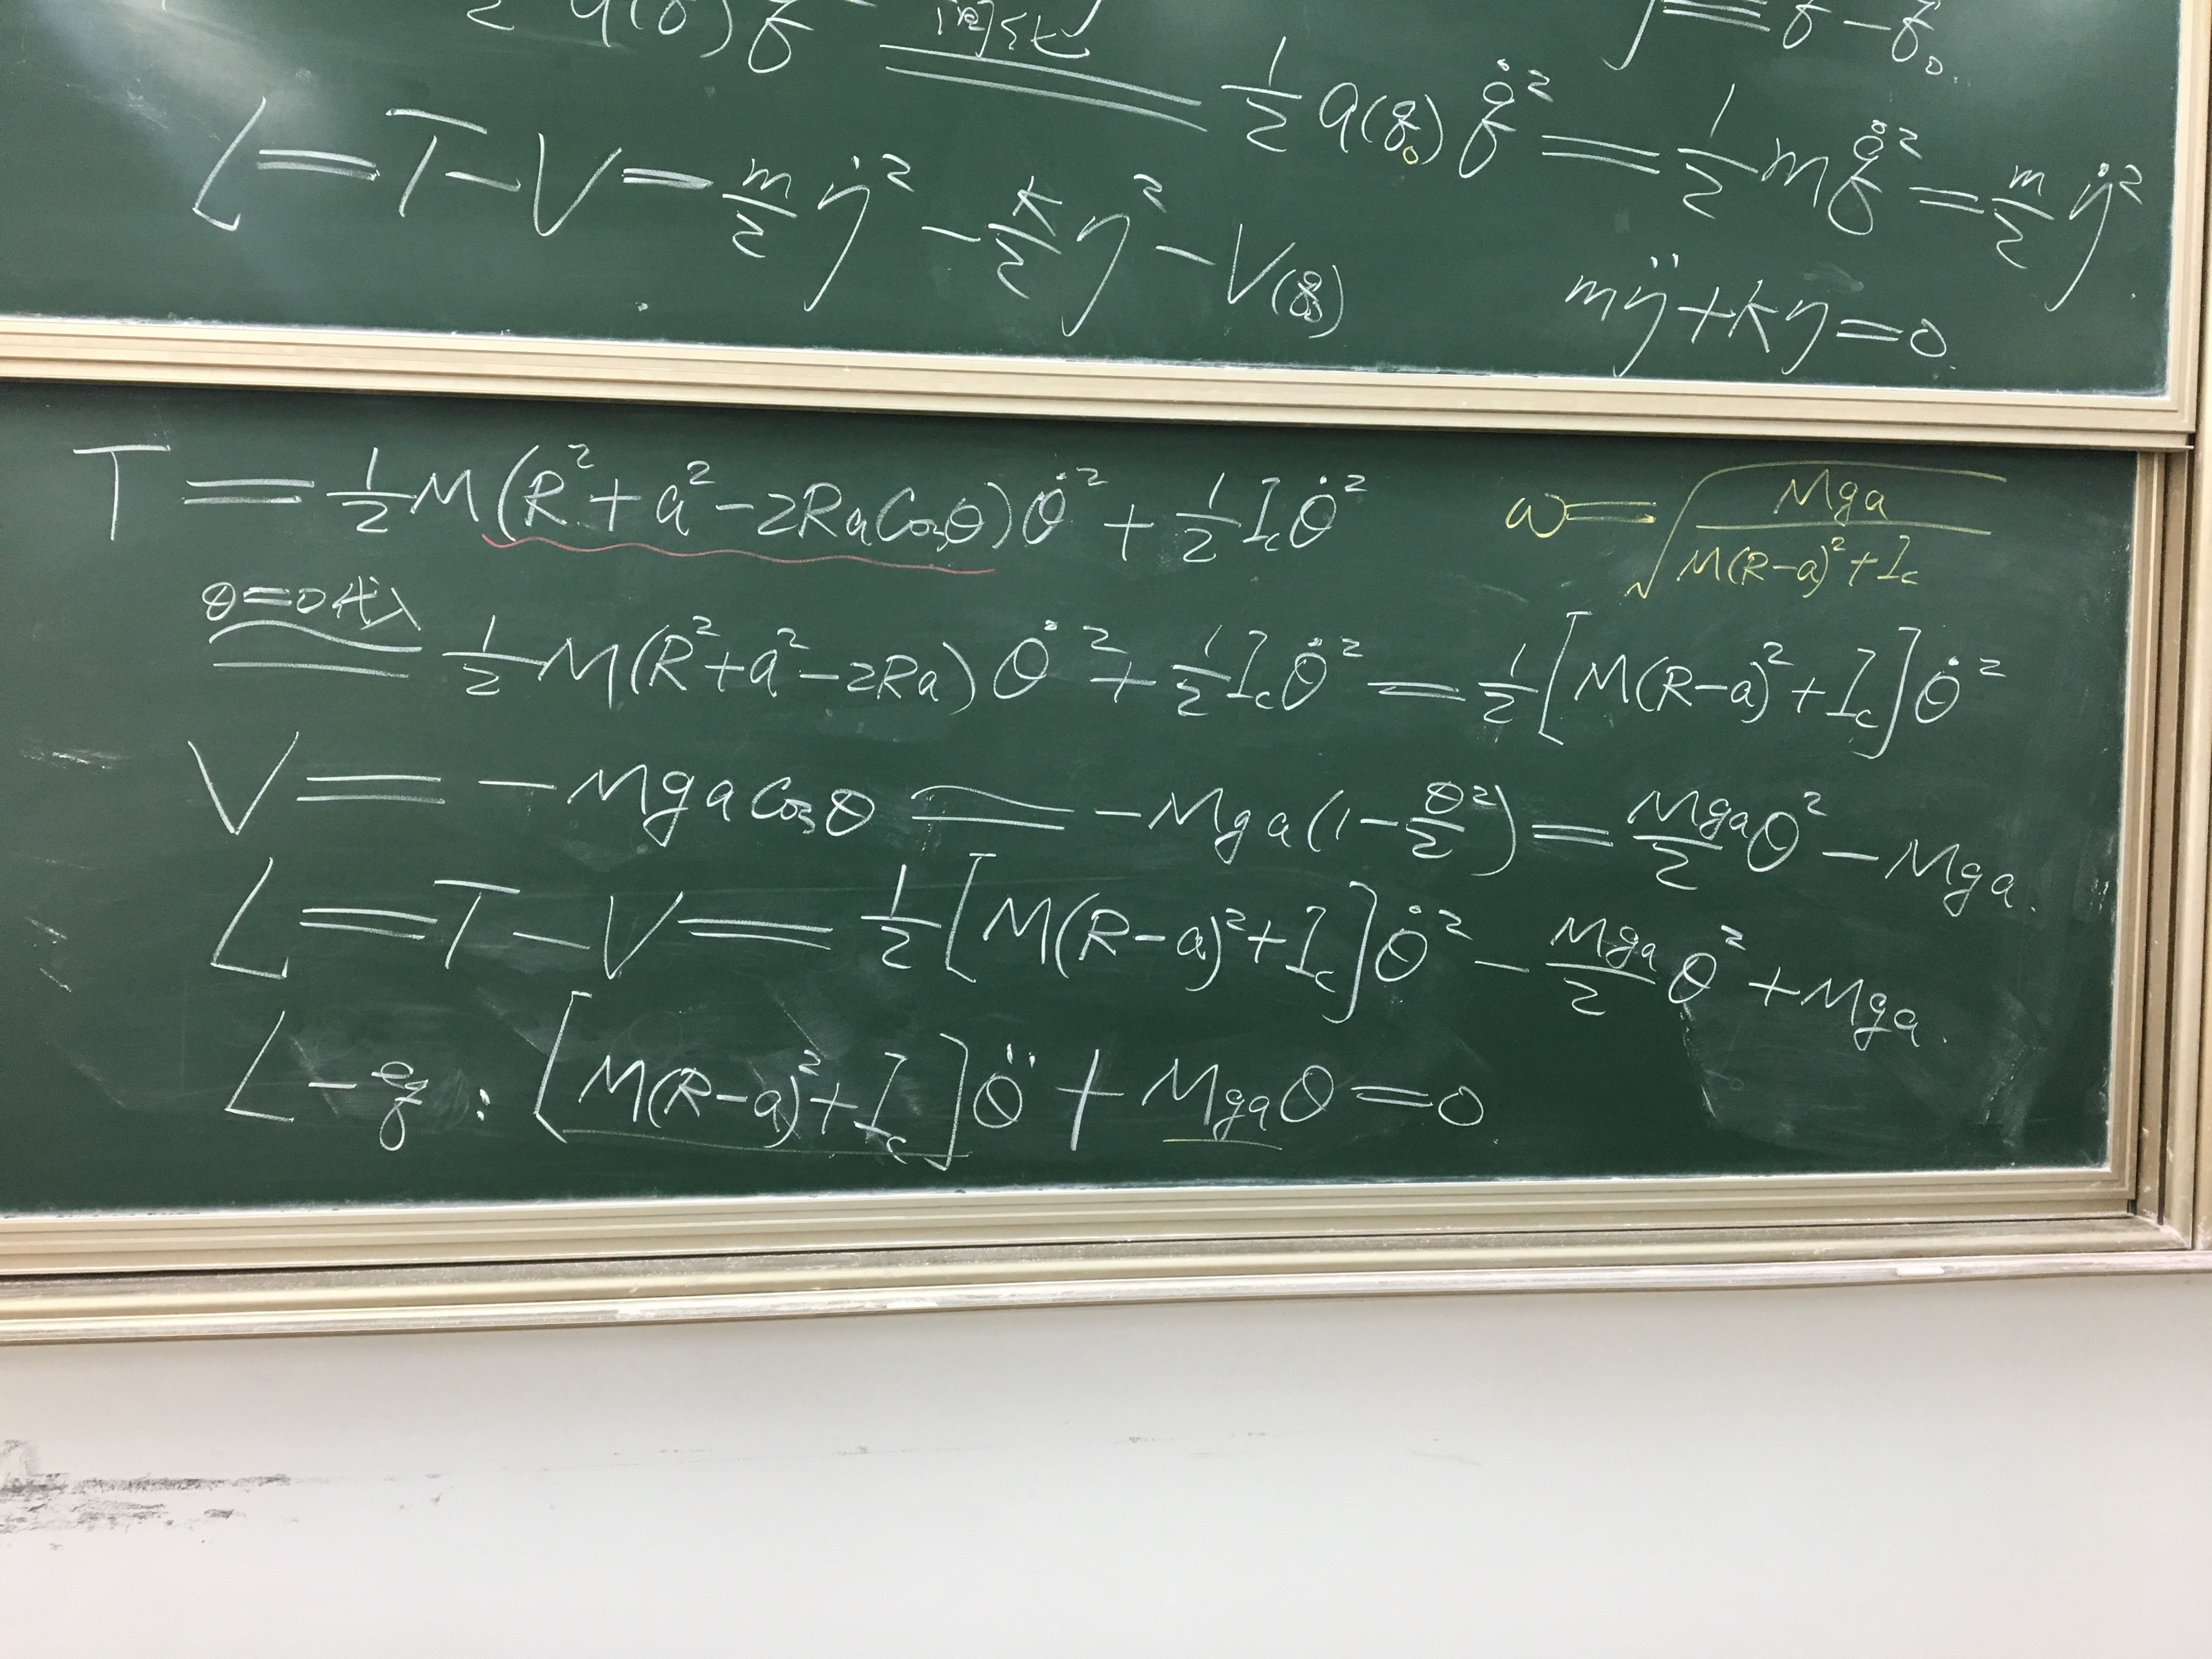 L=T-V=\frac{m}{2}\dot{η}^2-\frac{k}{2}η^2-V(q_0)
\frac{1}{2}a(q_0)\dot{q}^2=\frac{1}{2}m\dot{q}^2=\frac{m}{2}\dot{η}^2
m\ddot{η}+kη=0
T=\frac{1}{2}M(R^2+a^2-2RaCosθ)\dot{θ}^2+\frac{1}{2}I_c\dot{θ}^2
ω=\sqrt{\frac{Mga}{M(R-a)^2+I_c}}
θ=0代入 \frac{1}{2}M(R^2+a^2-2Ra)\dot{θ}^2+\frac{1}{2}I_c\dot{θ}^2=\frac{1}{2}[M(R-a)^2+I_c]\dot{θ}^2
V=-MgaCosθ=-Mga(1-\frac{θ^2}{2})=\frac{Mga}{2}θ^2-Mga.
L=T-V=\frac{1}{2}[M(R-a)^2+I_c]\dot{θ}^2-\frac{Mga}{2}θ^2+Mga.
L-eq: [M(R-a)^2+I_c]\ddot{θ}+Mgaθ=0